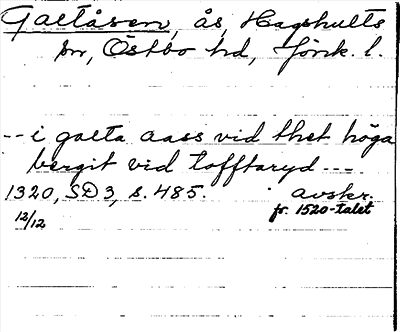 Galtåsen, ås, Hagshults
sn, Östbo hd, Jönk. l.
-- i galta aass vid thet höga
bergit vid tofftaryd ---
1320, SD 3, s. 485. avskr.
12/12 fr. 1520-talet